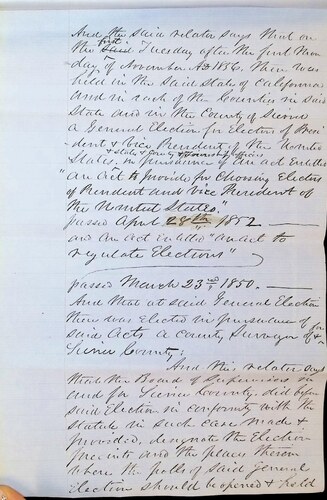 And the said relator says that on
the first Tuesday after the first Mon
day of November AD 1856. there was
held in the said State of California
and in each of the Counties in said
State and in the County of Sierra
a General Election for Electors of Pres
ident & Vice President of the United
& State & County & Township officers
States. in pursuance of an Act Entitled
"an Act to provide for choosing Electors
of President and Vice President of
the United States."
passed April 28th 1852
and an Act Entitled "an act to
regulate Elections"
passed March 23rd 1850.
And that at said General Election
there was Elected in pursuance of
said Acts a County Surveyor of
Sierra County:
And this relator says
that the Board of Supervisors in
and for Sierra County. did before
said Election in conformity with the
statute in such case made &
provided, designate the Election
precincts and the places therein
where the polls of said General
Election should be opened & held